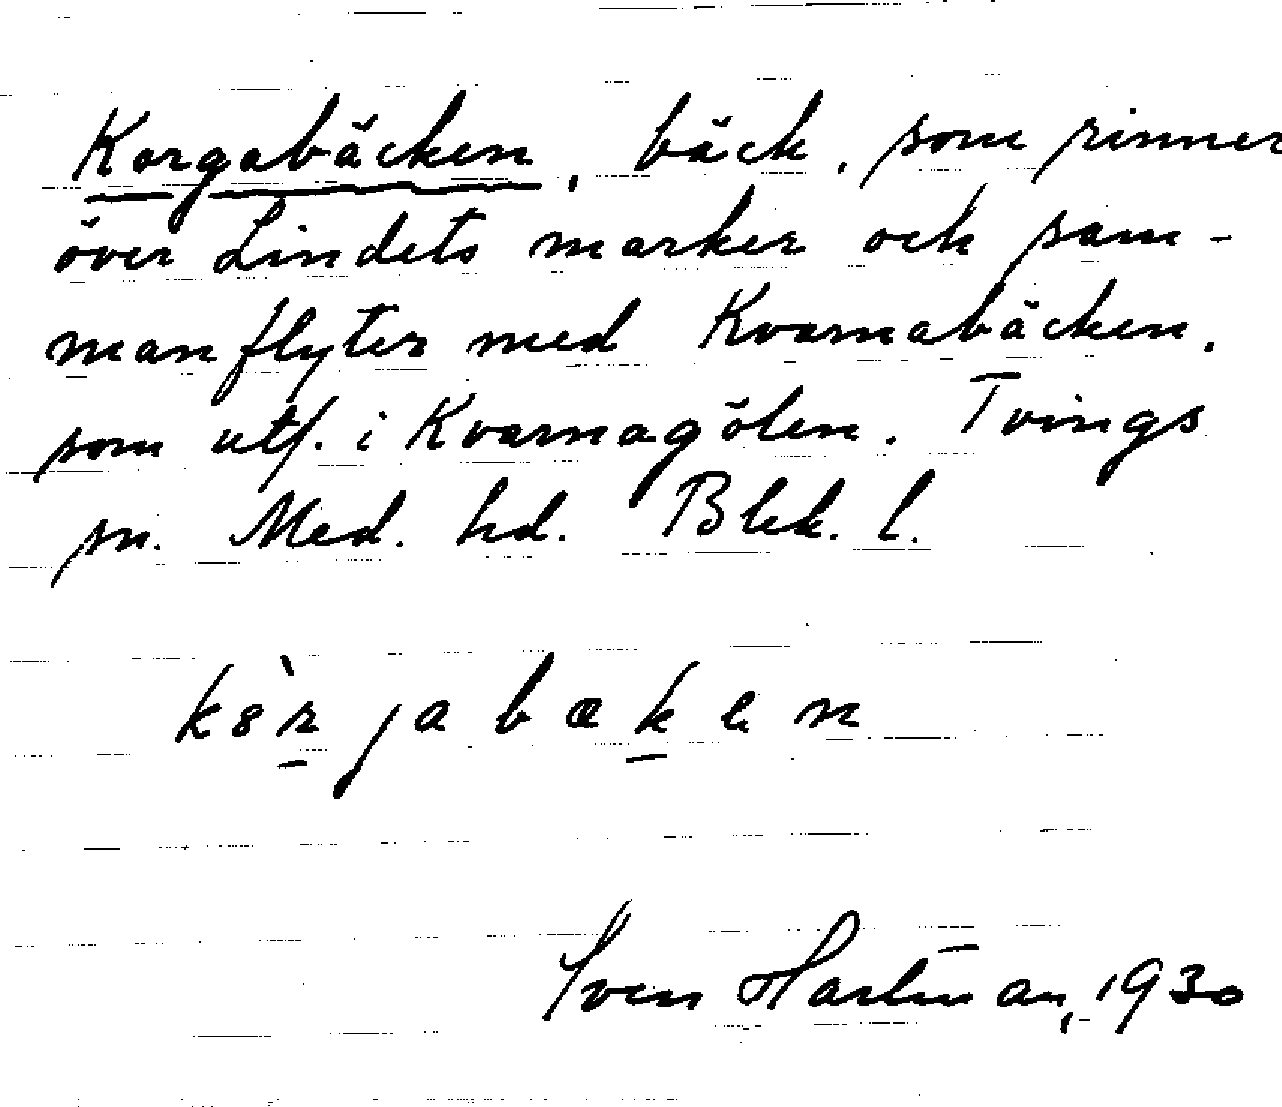 Korgabäcken, bäck, som rinner
över Lindets marker och sam-
manflyter med Kvarnabäcken,
som utf. i Kvarnagölen. Tvings
sn. Med. hd. Blek. l.
kərjabækən
Sven Hartman, 1930